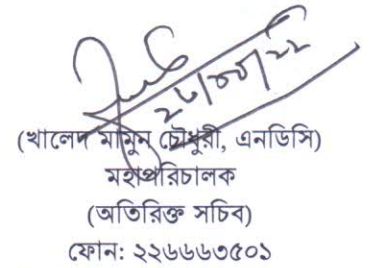 ২৮/০৩/২২
(খালেদ মামুন চৌধুরী, এনডিসি)
মহাপরিচালক
(অতিরিক্ত সচিব)
ফোন: ২২৬৬৬৩৫০১